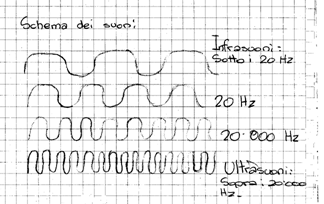 Schema dei suoni:
Infrasuoni:
Sotto i 20 Hz
20 Hz
20.000 Hz
Ultrasuoni:
Sopra i 20.000
Hz.